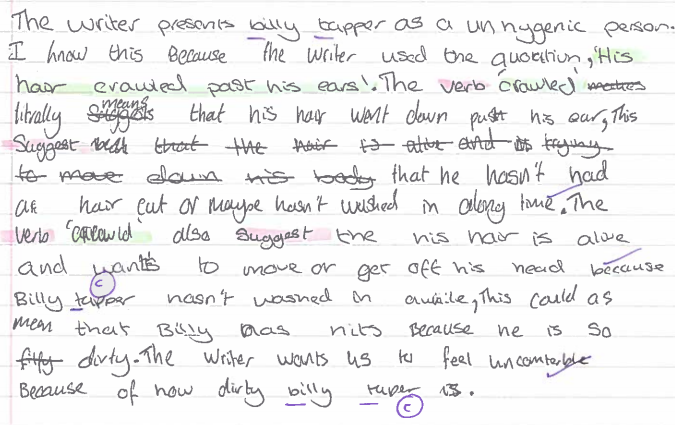 The writer presents billy tapper as a unhygenic person.
I know this Because the writer used the quotation, 'His
hair crawled past his ears'. The verb 'crawled' makes
litrally suggests means that his hair went down past his ear, This
Suggest that the hair is alive and is tryung
to move down his body that he hasn't had
a hair cut or maybe hasn't washed in along time. The
verb 'crawld' also suggest the his hair is alive
and wants to move or get off his head because
Billy tapper hasn't washed in awile, This could as
mean that Billy has nits Because he is so
filfy dirty. The writer wants us to feel uncomterble
Because of how dirty billy taper is.
C
C